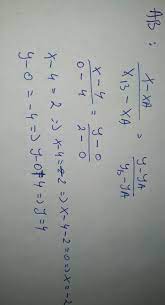 AB: \frac{x-x_A}{x_B-x_A} = \frac{y-y_A}{y_B-y_A}
\frac{x-4}{0-4} = \frac{y-0}{2-0}
x-4=2 => x-4=2 => x-4-2=0 => x=-2
y-0=-4 => y-0=4 => y=4